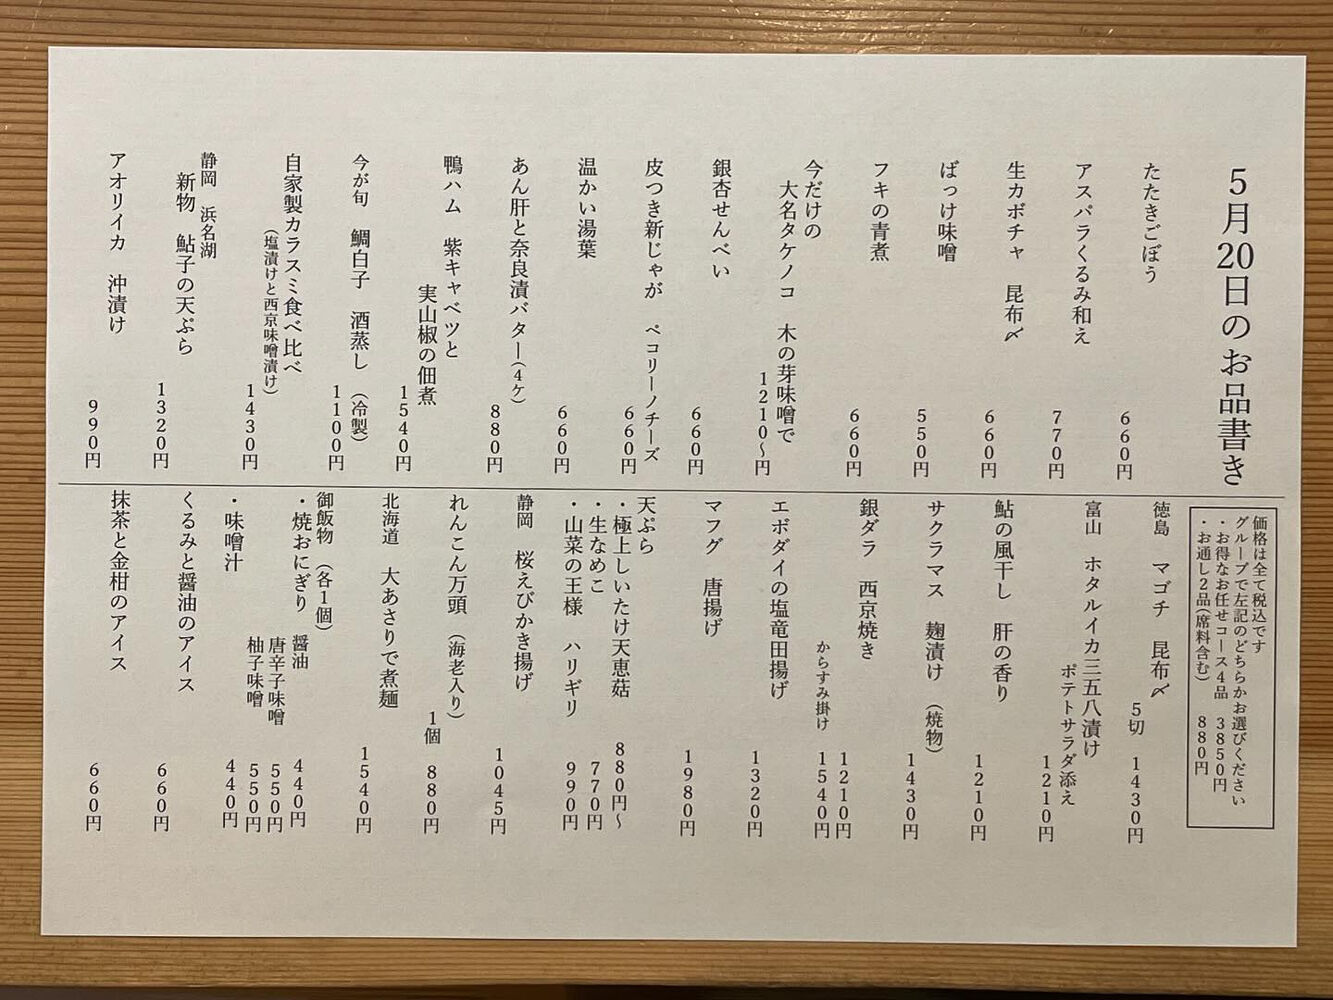 5月20日のお品書き
たたきごぼう
660円
アスパラくるみ和え
770円
生カボチャ 昆布〆
660円
ばっけ味噌
550円
フキの青煮
660円
今だけの
大名タケノコ 木の芽味噌で
1210〜円
銀杏せんべい
660円
皮つき新じゃが ペコリーノチーズ
660円
温かい湯葉
660円
あん肝と奈良漬バター(4ケ)
880円
鴨ハム 紫キャベツと
実山椒の佃煮
1540円
今が旬 鯛白子 酒蒸し (冷製)
1100円
自家製カラスミ食べ比べ
(塩漬けと西京味噌漬け)
1430円
静岡 浜名湖
新物 鮎子の天ぷら
1320円
アオリイカ 沖漬け
990円
価格は全て税込です
グループで左記のどちらかお選びください
・お得なお任せコース4品 3850円
・お通し2品(席料含む) 880円
徳島 マゴチ 昆布〆
5切 1430円
富山 ホタルイカ三五八漬け
ポテトサラダ添え
1210円
鮎の風干し 肝の香り
1210円
サクラマス 麹漬け (焼物)
1430円
銀ダラ 西京焼き
1210円
からすみ掛け 1540円
エボダイの塩竜田揚げ
1320円
マフグ 唐揚げ
1980円
天ぷら
・極上しいたけ天恵菇 880円〜
・生なめこ 770円
・山菜の王様 ハリギリ 990円
静岡 桜えびかき揚げ
1045円
れんこん万頭 (海老入り)
1個 880円
北海道 大あさりで煮麺
1540円
御飯物 (各1個)
・焼おにぎり 醤油 440円
唐辛子味噌 550円
柚子味噌 550円
・味噌汁 440円
くるみと醤油のアイス
660円
抹茶と金柑のアイス
660円